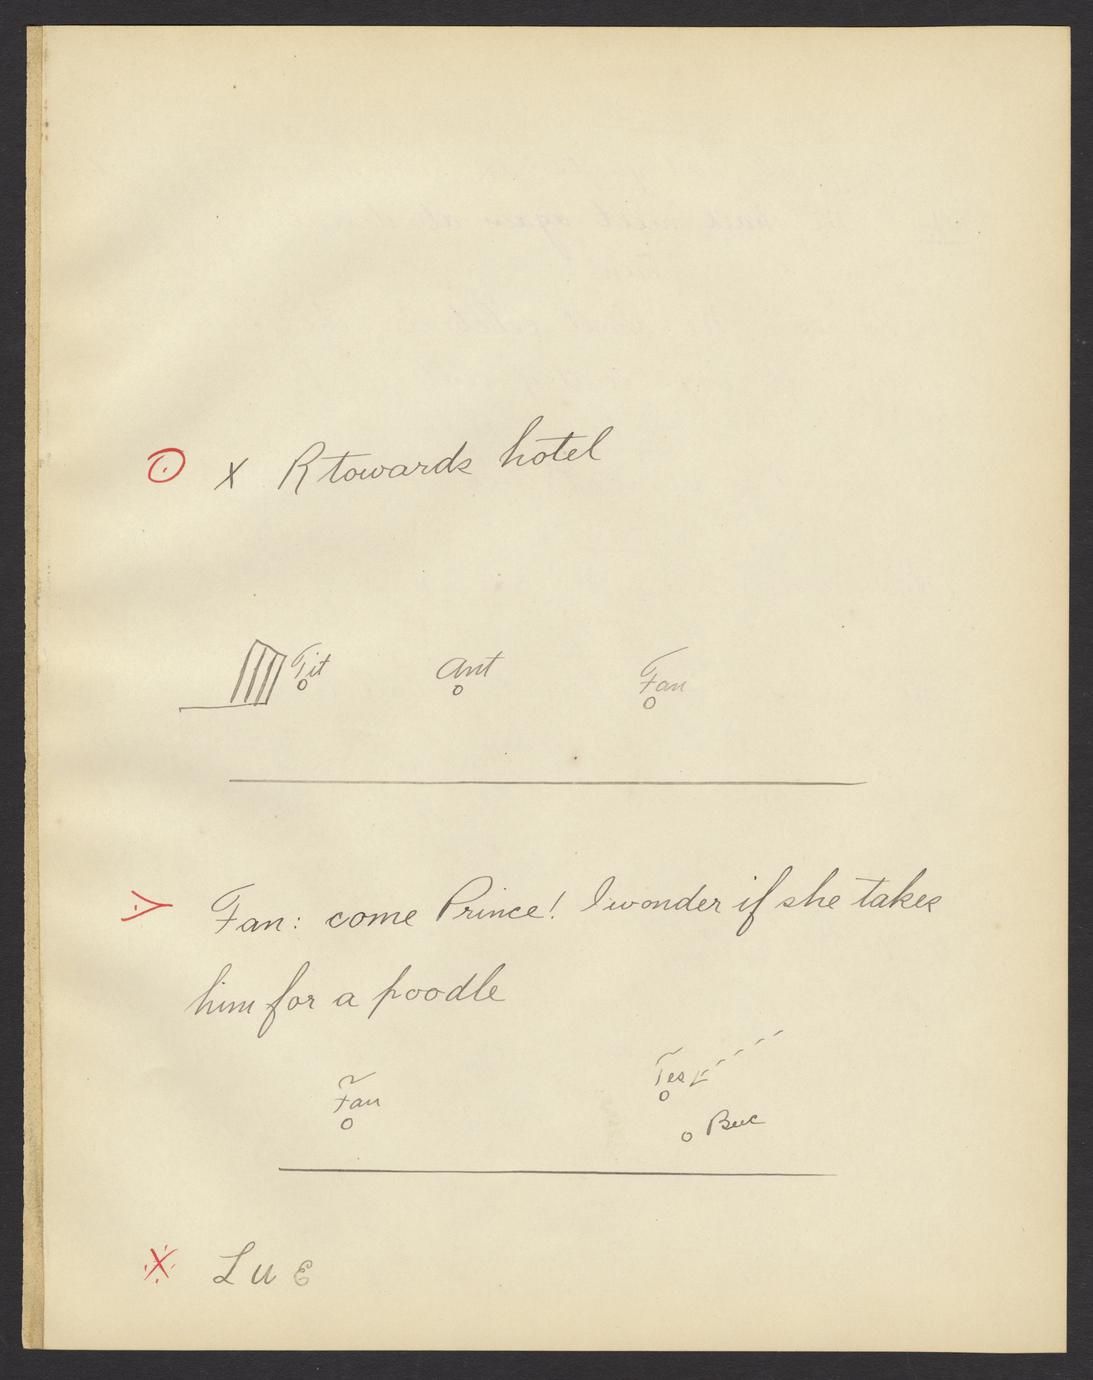 X R towards hotel
Tit Ant Fan
Fan: come Prince! I wonder if she takes
him for a poodle
Fan Tes
Buc
L U E